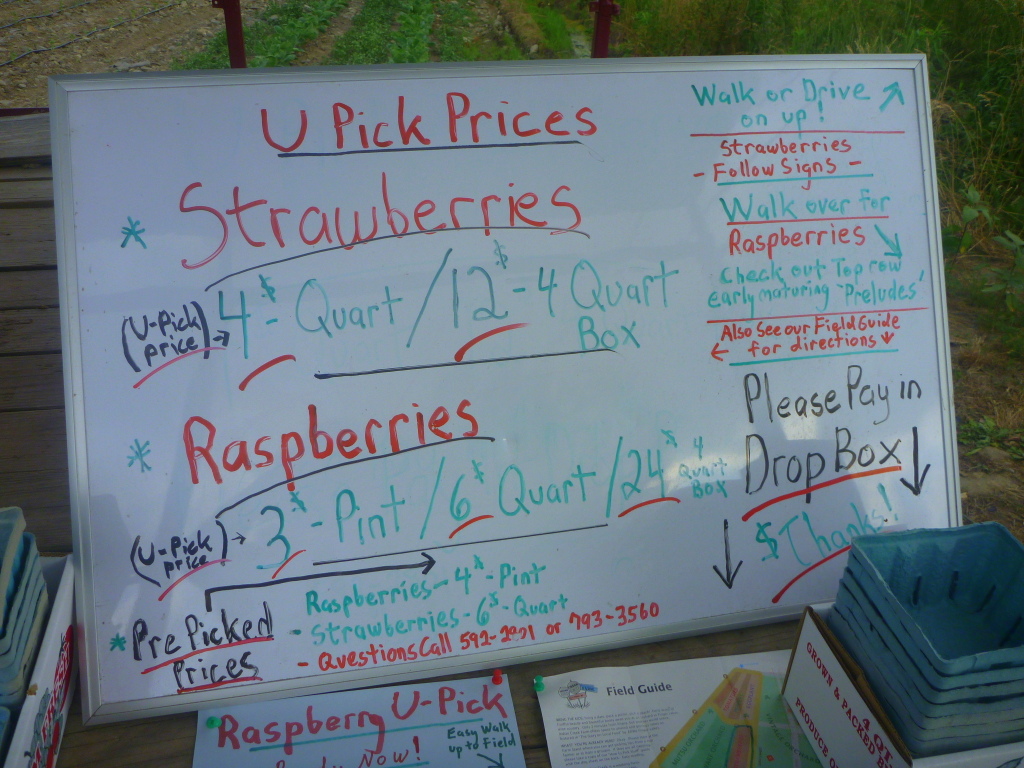 U Pick Prices
* Strawberries
(U-Pick price) → 4$ - Quart / 12$ - 4 Quart Box
* Raspberries
(U-Pick price) → 3$ - Pint / 6$ Quart / 24$ 4 Quart Box
* Pre Picked Prices
Raspberries - 4$ - Pint
- Strawberries - 6$ - Quart
- Questions Call or 793-3560
Walk or Drive
on up!
Strawberries
- Follow Signs -
Walk over for
Raspberries
Check out Top row
early maturing "Preludes"
Also See our Field Guide
for directions
Please Pay in
Drop Box
$ Thanks!
Raspberry U-Pick
Now!
Easy Walk
up to Field
Field Guide
GROWN & PACKED
PRODUCE